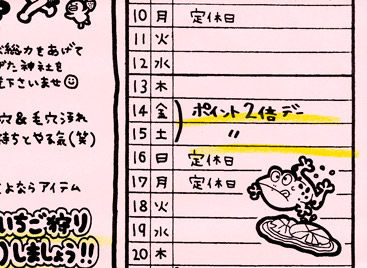 総力をあげて
げた神社を
下さいませ
穴&毛穴汚れ
持ちとやる気(笑)
よならアイテム
いちご狩り
しましょう!!
10 月 定休日
11 火
12 水
13 木
14 金 ポイント2倍デー
15 土 〃
16 日 定休日
17 月 定休日
18 火
19 水
20 木